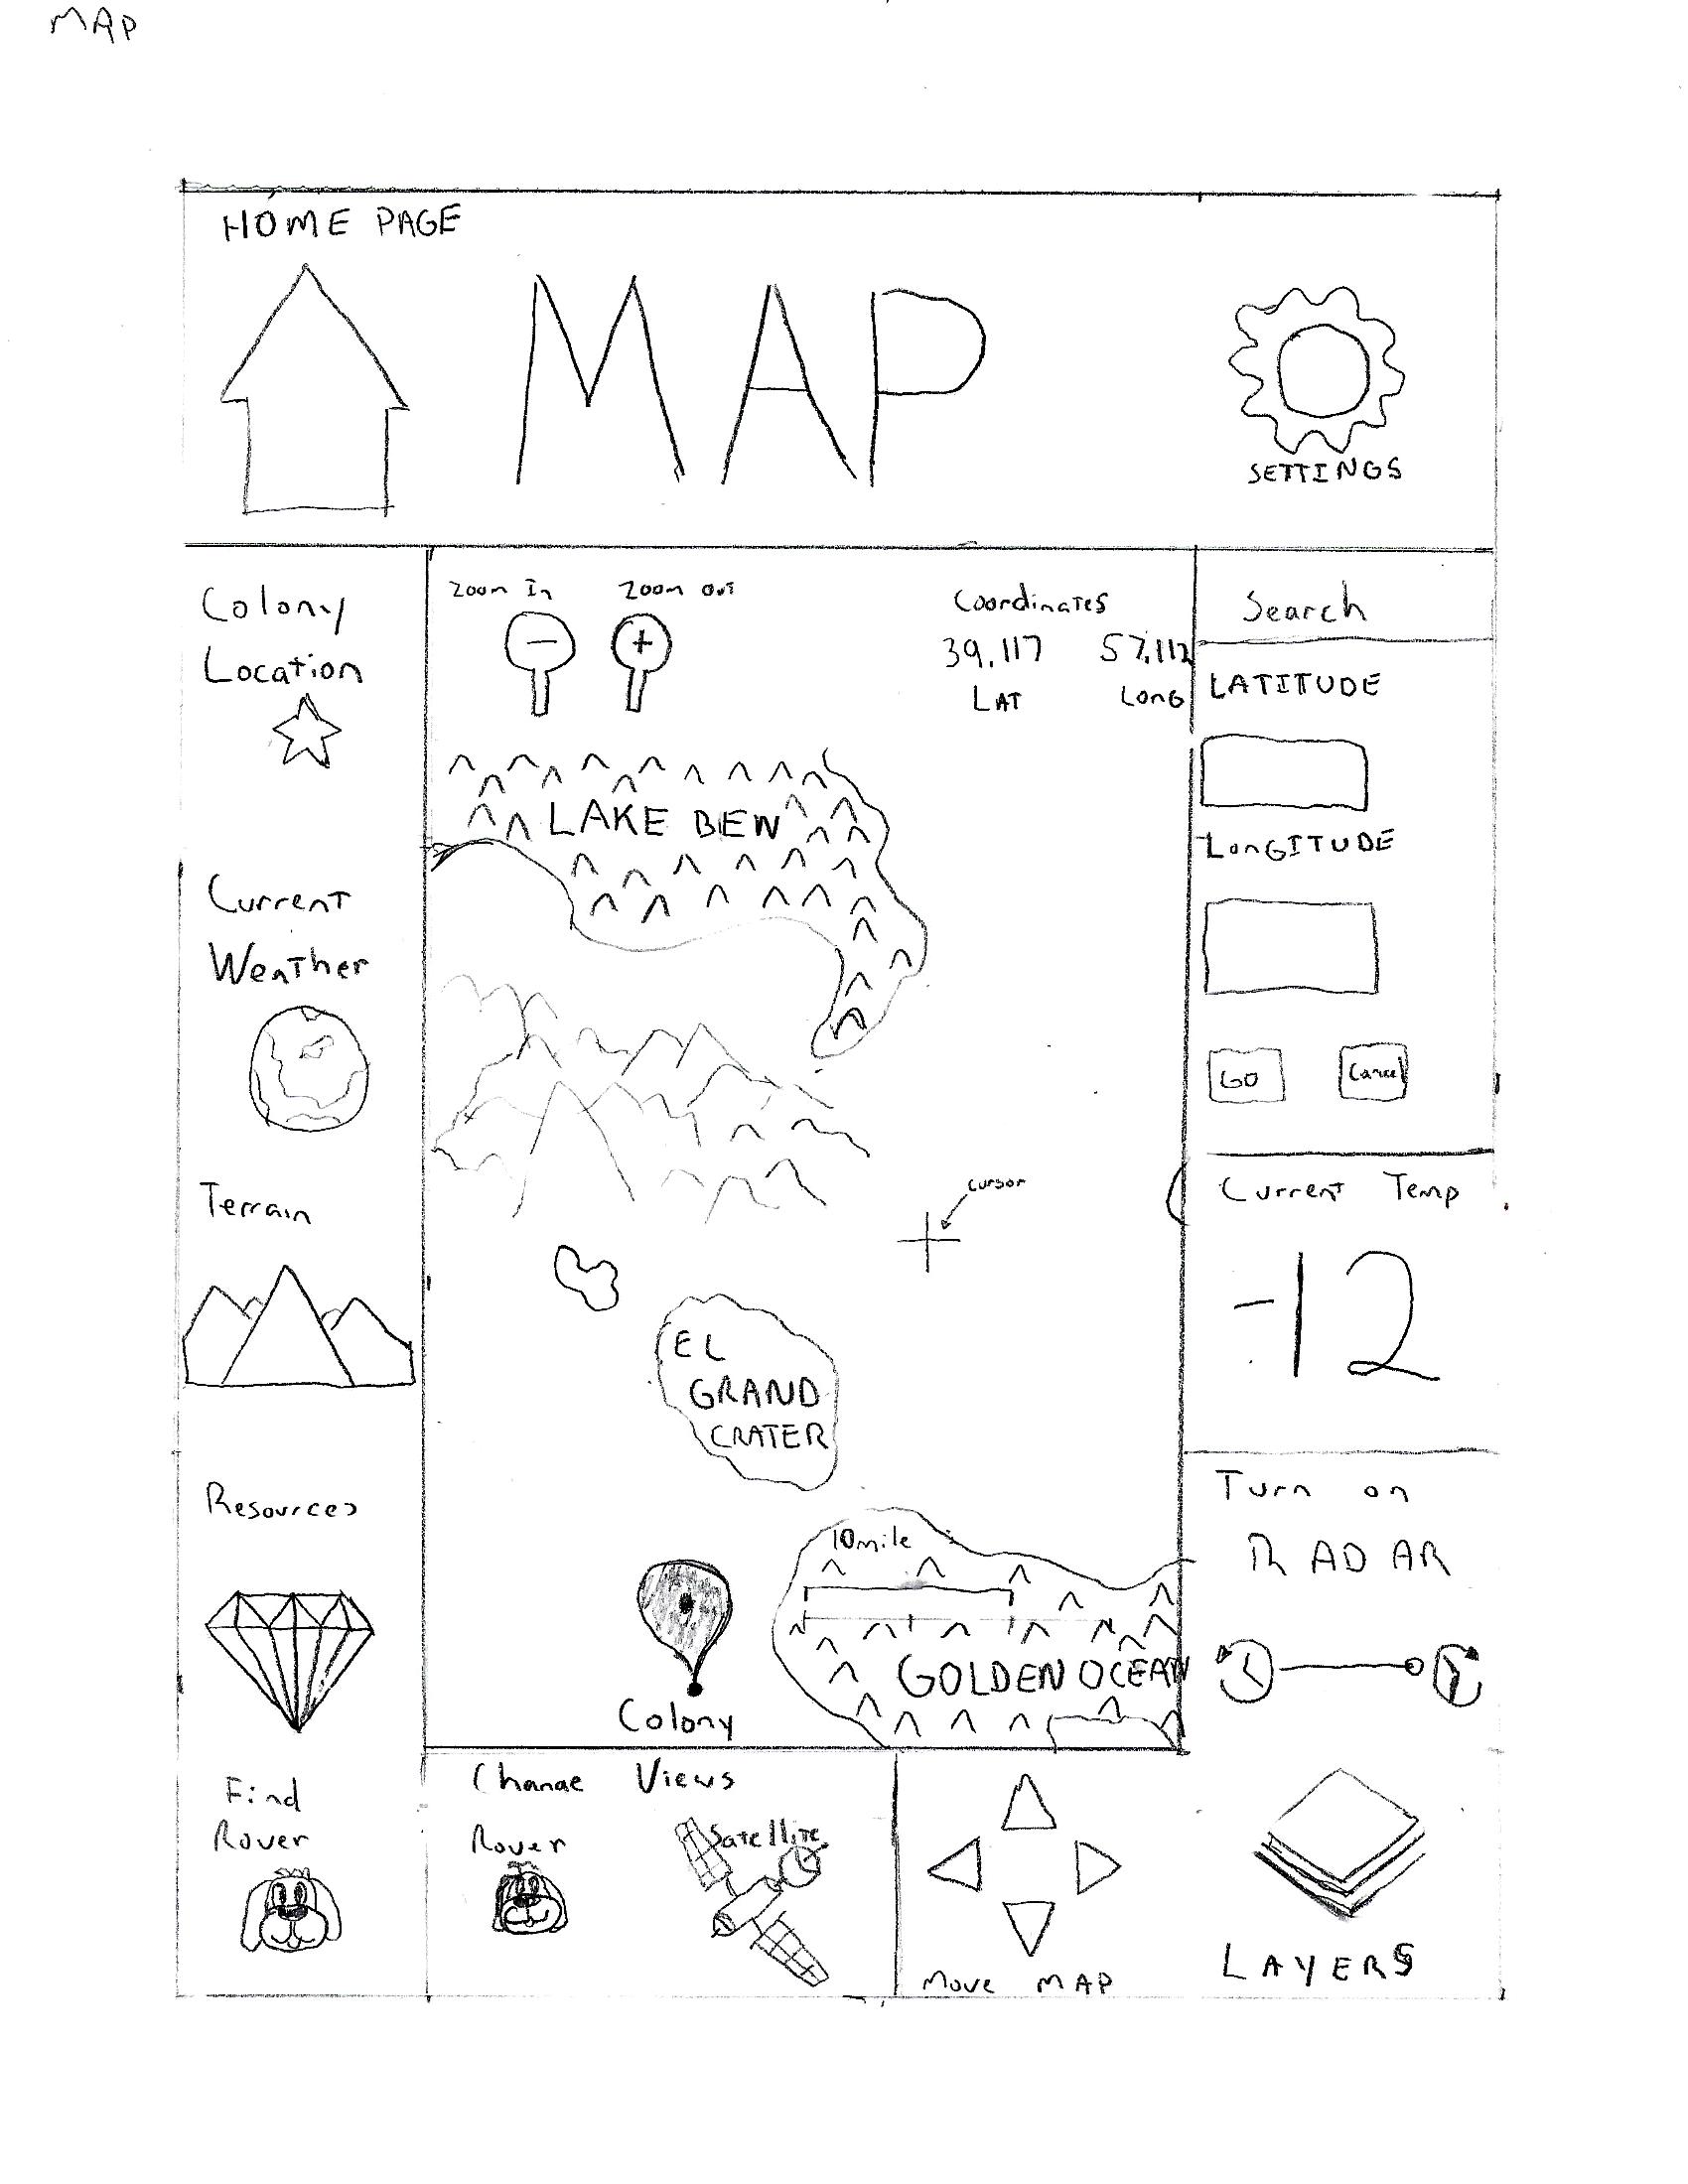 MAP
HOME PAGE
MAP
SETTINGS
Colony
Location
Current
Weather
Terrain
Resources
Find
Rover
Zoom In
Zoom Out
-
+
Coordinates
39.117 57.112
LAT LONG
LAKE BEN
cursor
EL
GRAND
CRATER
10 mile
GOLDEN OCEAN
Colony
Search
LATITUDE
LONGITUDE
GO
Cancel
Current Temp
-12
Turn on
RADAR
Change Views
Rover
Satellite
Move MAP
LAYERS